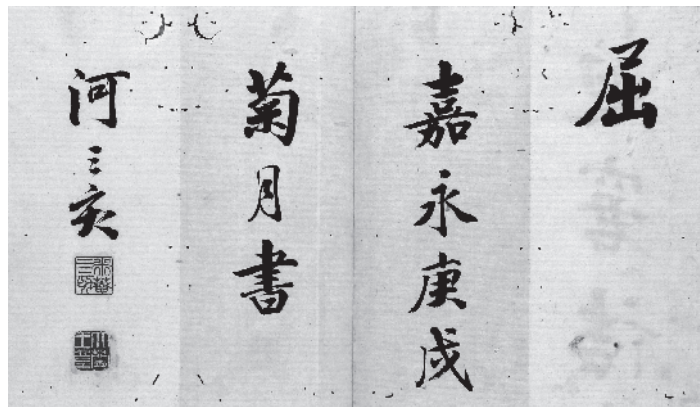 屈
嘉永庚戌
菊月書
河三亥